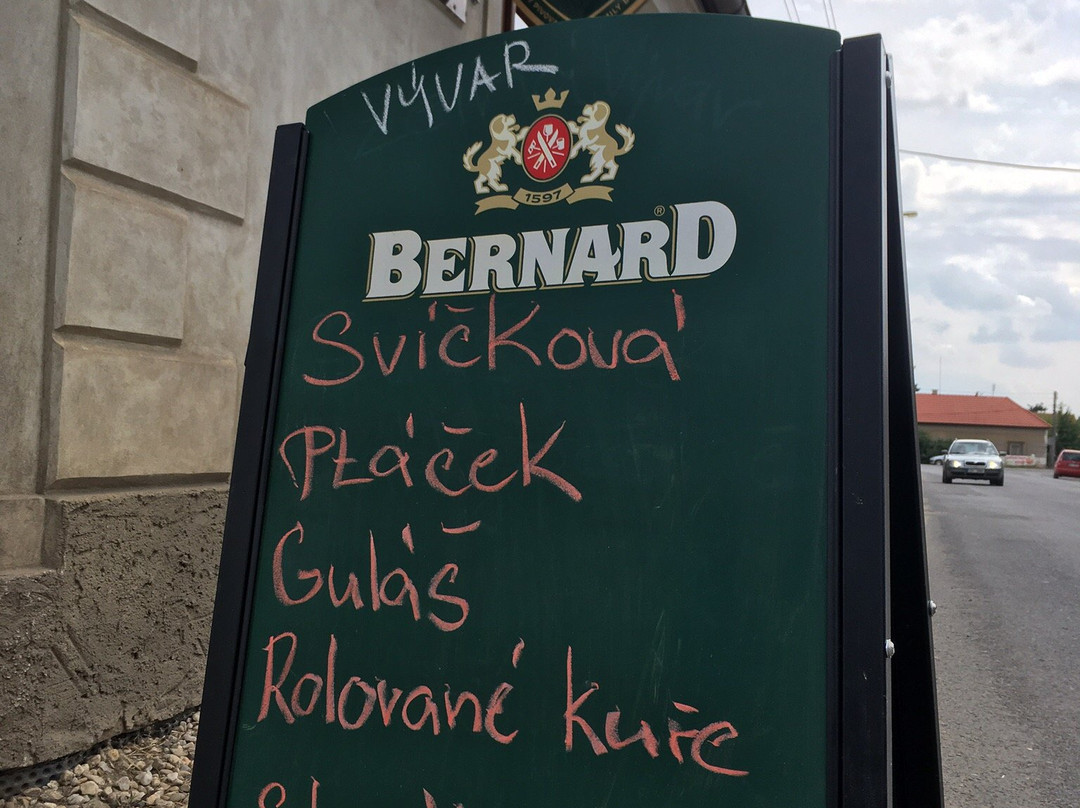 VÝVAR
1597
BERNARD®
Svíčková
Ptáček
Guláš
Rolované kuře